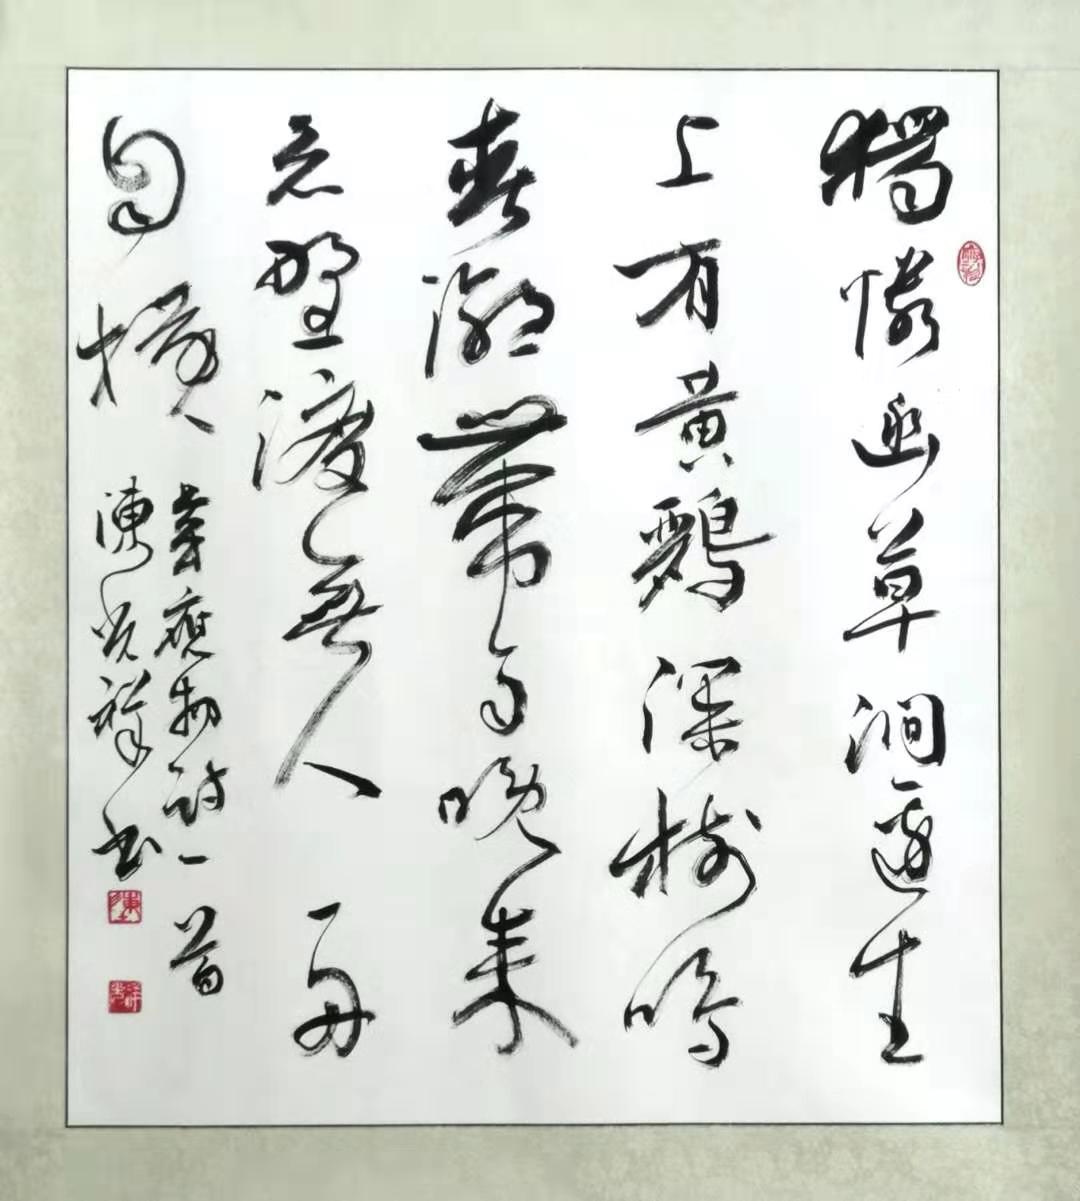 獨憐幽草澗邊生
上有黄鸝深樹鳴
春潮帶雨晚来
急野渡無人舟
自橫
韋應物詩一首
陳光祥書